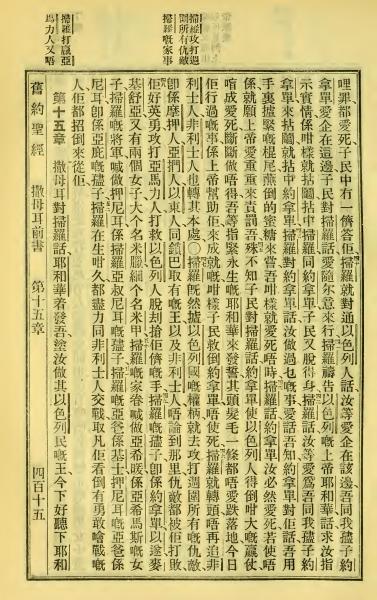 掃羅攻打週
圍所有仇敵
掃羅嘅家事
掃羅打贏亞
馬力人又唔
哩罪都愛死子民中有一儕答佢掃羅就對通以色列人話汝等愛企在該邊吾同我孻子約
拿單愛企在這邊子民對掃羅話愛隨尔意來行掃羅禱告以色列嘅上帝耶和華話求汝指
示實情係咁樣就拈鬮拈中掃羅同約拿單子民又脫得身掃羅話汝等愛爲吾同我孻子約
拿單來拈鬮就拈中約拿單掃羅對約拿單話汝做過乜嘅事愛話吾知約拿單對佢話吾用
手裏攎緊嘅棍尾蘸倒的蜜糖來嘗吾咁樣就愛死唔時掃羅話約拿單汝必然愛死若使唔
係就願上帝愛重重來責罰吾殊不知子民對掃羅話約拿單使以色列人得倒咁大嘅贏仗
唔成愛死斷斷做唔得吾等指緊永生嘅耶和華來發誓其頭髮毛一條都唔愛跌落地今日
佢行過嘅事係上帝幫助佢來成就嘅咁樣子民救倒約拿單唔使死掃羅就轉頭唔再追非
利士人非利士人也轉其本處○掃羅既然攎以色列國嘅權柄就去攻打週圍所有嘅仇敵
卽係摩押人亞捫人以東人同鎖巴取有嘅王以及非利士人唔論到那里仇敵都被佢打敗
佢好英勇攻打亞馬力人打救以色列人脫却搶佢儕嘅手掃羅嘅孻子卽係約拿單以遂麥
基舒亞又有兩個女子大个名米臘細个名米甲掃羅嘅家眷喊做亞希暖係亞希馬斯嘅女
子掃羅嘅將軍喊做押尼耳係掃羅亞叔尼耳嘅孻子掃羅嘅亞爸係基士押尼耳嘅亞爸係
尼耳卽係亞庇嘅孻子掃羅在生咁久都盡力同非利士人交戰取凡佢看倒有勇敢噲戰嘅
人佢都招倒來從佢
第十五章 撒母耳對掃羅話耶和華着發吾塗汝做其以色列民嘅王今下好聽下耶和
舊約聖經 撒母耳前書 第十五章 四百十五